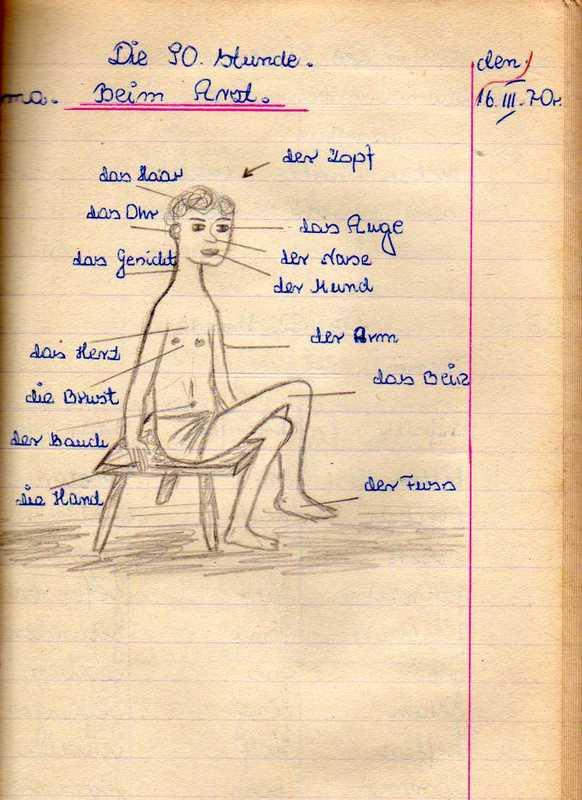 Die 90. Stunde.
den
ma. Beim Arzt.
16. III. 70r.
der Zopf
das Haar
das Ohr
das Auge
das Gesicht
der Nase
der Mund
der Arm
das Herz
das Bein
die Brust
der Bauch
der Fuss
die Hand